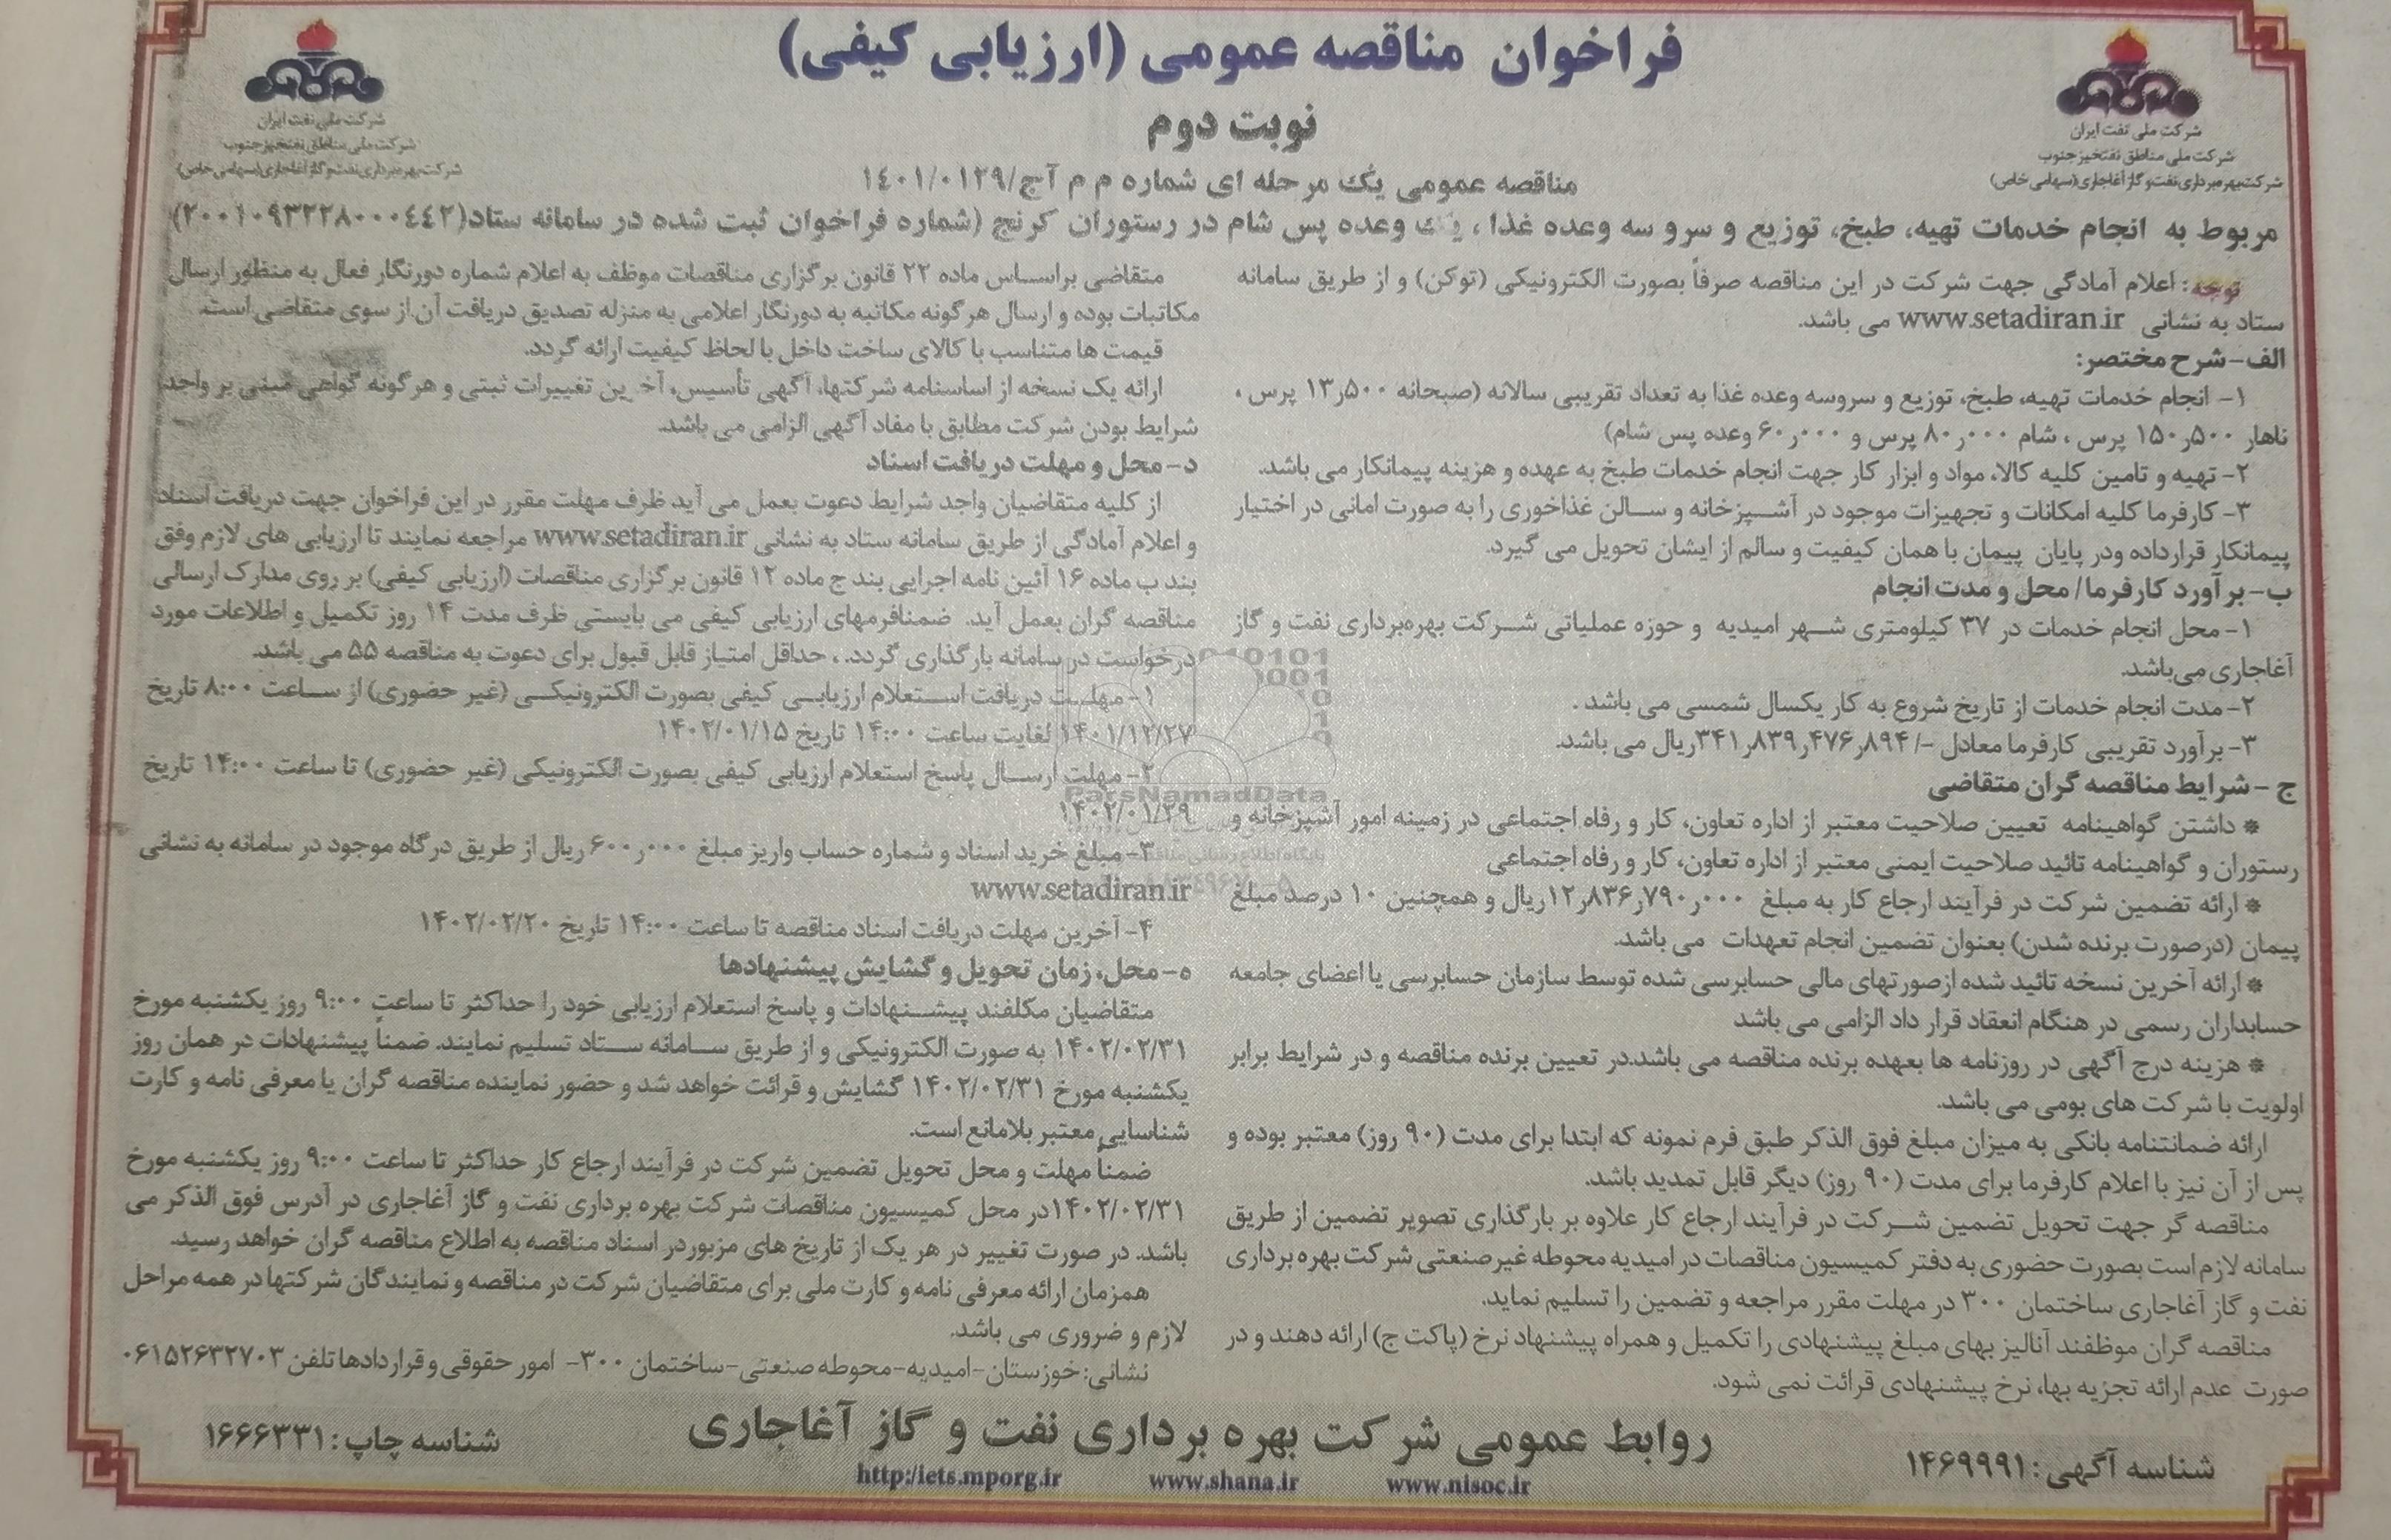 فراخوان مناقصه عمومی (ارزیابی کیفی)
نوبت دوم
شرکت ملی نفت ایران
شرکت ملی مناطق نفتخیز جنوب
شرکت بهره برداری نفت و گاز آغاجاری (سهامی خاص)
شرکت ملی نفت ایران
شرکت ملی مناطق نفتخیز جنوب
شرکت بهره برداری نفت و گاز آغاجاری (سهامی خاص)
مناقصه عمومی یک مرحله ای شماره م م آج/۱۴۰۱/۰۱۲۹
مربوط به انجام خدمات تهیه، طبخ، توزیع و سرو سه وعده غذا ، یک وعده پس شام در رستوران کرنج (شماره فراخوان ثبت شده در سامانه ستاد(۲۰۰۱۰۹۳۲۲۸۰۰۰۴۴۲)
توجه: اعلام آمادگی جهت شرکت در این مناقصه صرفاً بصورت الکترونیکی (توکن) و از طریق سامانه
ستاد به نشانی www.setadiran.ir می باشد.
الف-شرح مختصر:
۱- انجام خدمات تهیه، طبخ، توزیع و سروسه وعده غذا به تعداد تقریبی سالانه (صبحانه ۱۳٫۵۰۰ پرس ،
ناهار ۱۵۰٫۵۰۰ پرس ، شام ۸۰٫۰۰۰ پرس و ۶۰٫۰۰۰ وعده پس شام)
۲- تهیه و تامین کلیه کالا، مواد و ابزار کار جهت انجام خدمات طبخ به عهده و هزینه پیمانکار می باشد.
۳- کارفرما کلیه امکانات و تجهیزات موجود در آشپزخانه و سالن غذاخوری را به صورت امانی در اختیار
پیمانکار قرارداده ودر پایان پیمان با همان کیفیت و سالم از ایشان تحویل می گیرد.
ب-برآورد کارفرما/ محل و مدت انجام
۱- محل انجام خدمات در ۳۷ کیلومتری شهر امیدیه و حوزه عملیاتی شرکت بهره‌برداری نفت و گاز
آغاجاری می‌باشد.
۲- مدت انجام خدمات از تاریخ شروع به کار یکسال شمسی می باشد .
۳- برآورد تقریبی کارفرما معادل -/۳۴۱٫۸۳۹٫۴۷۶٫۸۹۴ریال می باشد.
ج -شرایط مناقصه گران متقاضی
* داشتن گواهینامه تعیین صلاحیت معتبر از اداره تعاون، کار و رفاه اجتماعی در زمینه امور آشپزخانه و
رستوران و گواهینامه تائید صلاحیت ایمنی معتبر از اداره تعاون، کار و رفاه اجتماعی
* ارائه تضمین شرکت در فرآیند ارجاع کار به مبلغ ۱۲٫۸۳۶٫۷۹۰٫۰۰۰ریال و همچنین ۱۰ درصد مبلغ
پیمان (درصورت برنده شدن) بعنوان تضمین انجام تعهدات می باشد.
* ارائه آخرین نسخه تائید شده ازصورتهای مالی حسابرسی شده توسط سازمان حسابرسی یا اعضای جامعه
حسابداران رسمی در هنگام انعقاد قرار داد الزامی می باشد
* هزینه درج آگهی در روزنامه ها بعهده برنده مناقصه می باشد.در تعیین برنده مناقصه و در شرایط برابر
اولویت با شرکت های بومی می باشد.
ارائه ضمانتنامه بانکی به میزان مبلغ فوق الذکر طبق فرم نمونه که ابتدا برای مدت (۹۰ روز) معتبر بوده و
پس از آن نیز با اعلام کارفرما برای مدت (۹۰ روز) دیگر قابل تمدید باشد.
مناقصه گر جهت تحویل تضمین شرکت در فرآیند ارجاع کار علاوه بر بارگذاری تصویر تضمین از طریق
سامانه لازم است بصورت حضوری به دفتر کمیسیون مناقصات در امیدیه محوطه غیرصنعتی شرکت بهره برداری
نفت و گاز آغاجاری ساختمان ۳۰۰ در مهلت مقرر مراجعه و تضمین را تسلیم نماید.
مناقصه گران موظفند آنالیز بهای مبلغ پیشنهادی را تکمیل و همراه پیشنهاد نرخ (پاکت ج) ارائه دهند و در
صورت عدم ارائه تجزیه بها، نرخ پیشنهادی قرائت نمی شود.
متقاضی براساس ماده ۲۲ قانون برگزاری مناقصات موظف به اعلام شماره دورنگار فعال به منظور ارسال
مکاتبات بوده و ارسال هرگونه مکاتبه به دورنگار اعلامی به منزله تصدیق دریافت آن از سوی متقاضی است.
قیمت ها متناسب با کالای ساخت داخل با لحاظ کیفیت ارائه گردد.
ارائه یک نسخه از اساسنامه شرکتها، آگهی تأسیس، آخرین تغییرات ثبتی و هرگونه گواهی مبنی بر واجد
شرایط بودن شرکت مطابق با مفاد آگهی الزامی می باشد.
د-محل و مهلت دریافت اسناد
از کلیه متقاضیان واجد شرایط دعوت بعمل می آید ظرف مهلت مقرر در این فراخوان جهت دریافت اسناد
و اعلام آمادگی از طریق سامانه ستاد به نشانی www.setadiran.ir مراجعه نمایند تا ارزیابی های لازم وفق
بند ب ماده ۱۶ آئین نامه اجرایی بند ج ماده ۱۲ قانون برگزاری مناقصات (ارزیابی کیفی) بر روی مدارک ارسالی
مناقصه گران بعمل آید. ضمنافرمهای ارزیابی کیفی می بایستی ظرف مدت ۱۴ روز تکمیل و اطلاعات مورد
درخواست در سامانه بارگذاری گردد. ، حداقل امتیاز قابل قبول برای دعوت به مناقصه ۵۵ می باشد.
۱- مهلت دریافت استعلام ارزیابی کیفی بصورت الکترونیکی (غیر حضوری) از ساعت ۸:۰۰ تاریخ
۱۴۰۱/۱۲/۲۷ لغایت ساعت ۱۴:۰۰ تاریخ ۱۴۰۲/۰۱/۱۵
۲- مهلت ارسال پاسخ استعلام ارزیابی کیفی بصورت الکترونیکی (غیر حضوری) تا ساعت ۱۴:۰۰ تاریخ
۱۴۰۲/۰۱/۲۹
۳- مبلغ خرید اسناد و شماره حساب واریز مبلغ ۶۰۰٫۰۰۰ ریال از طریق درگاه موجود در سامانه به نشانی
www.setadiran.ir
۴- آخرین مهلت دریافت اسناد مناقصه تا ساعت ۱۴:۰۰ تاریخ ۱۴۰۲/۰۲/۲۰
ه-محل، زمان تحویل و گشایش پیشنهادها
متقاضیان مکلفند پیشنهادات و پاسخ استعلام ارزیابی خود را حداکثر تا ساعت ۹:۰۰ روز یکشنبه مورخ
۱۴۰۲/۰۲/۳۱ به صورت الکترونیکی و از طریق سامانه ستاد تسلیم نمایند. ضمناً پیشنهادات در همان روز
یکشنبه مورخ ۱۴۰۲/۰۲/۳۱ گشایش و قرائت خواهد شد و حضور نماینده مناقصه گران یا معرفی نامه و کارت
شناسایی معتبر بلامانع است.
ضمناً مهلت و محل تحویل تضمین شرکت در فرآیند ارجاع کار حداکثر تا ساعت ۹:۰۰ روز یکشنبه مورخ
۱۴۰۲/۰۲/۳۱در محل کمیسیون مناقصات شرکت بهره برداری نفت و گاز آغاجاری در آدرس فوق الذکر می
باشد. در صورت تغییر در هر یک از تاریخ های مزبوردر اسناد مناقصه به اطلاع مناقصه گران خواهد رسید.
همزمان ارائه معرفی نامه و کارت ملی برای متقاضیان شرکت در مناقصه و نمایندگان شرکتها در همه مراحل
لازم و ضروری می باشد.
نشانی: خوزستان-امیدیه-محوطه صنعتی-ساختمان ۳۰۰- امور حقوقی و قراردادها تلفن ۰۶۱۵۲۶۳۲۷۰۳
ParsNamadData
روابط عمومی شرکت بهره برداری نفت و گاز آغاجاری
شناسه آگهی: ۱۴۶۹۹۹۱
شناسه چاپ: ۱۶۶۶۳۳۱
http:/iets.mporg.ir www.shana.ir www.nisoc.ir